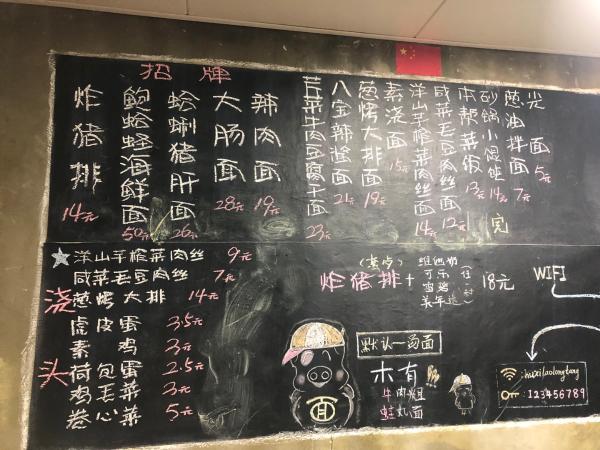 招牌
炸猪排 14元
鲍蛤蛏海鲜面 50元
蛤蜊猪肝面 26元
大肠面 28元
辣肉面 19元
芹菜牛肉豆腐干面 23元
八宝辣酱面 21元
葱烤大排面 19元
素浇面 15元
洋山芋榨菜肉丝面 14元
咸菜毛豆肉丝面 12元
本帮菜饭 13元
砂锅小馄饨 14元
葱油拌面 7元
光面 5元
完
浇头
☆洋山芋榨菜肉丝 9元
咸菜毛豆肉丝 7元
葱烤大排 14元
虎皮蛋 3.5元
素鸡 3元
荷包蛋 2.5元
鸡毛菜 3元
卷心菜 5元
炸猪排+
可乐
雪碧
美年达
18元
WIFI
默认一药面
木有
牛肉
蛙 面
面
:123456789